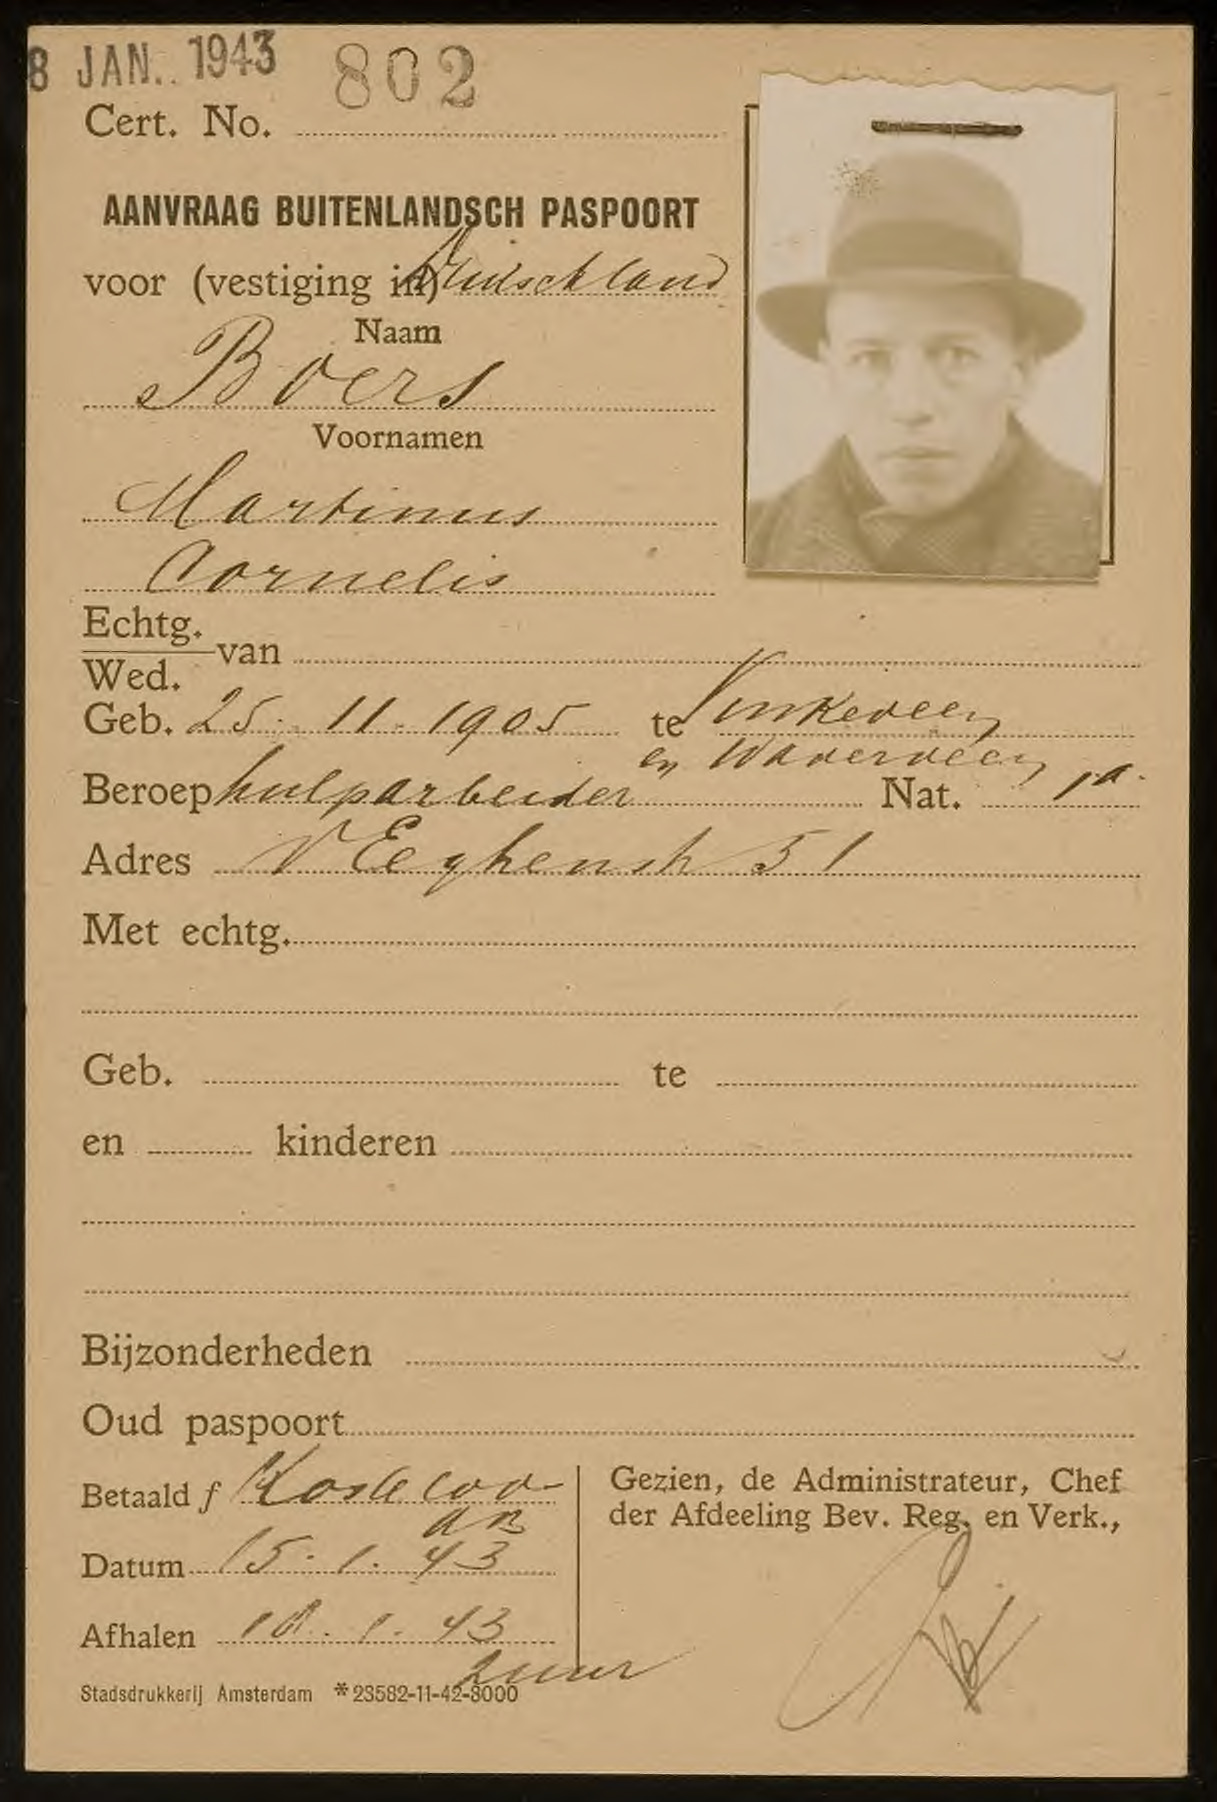 8 JAN. 1943 802
Cert. No.
AANVRAAG BUITENLANDSCH PASPOORT
voor (vestiging in) Duitschland
Naam
Boers
Voornamen
Martinus
Cornelis
Echtg.
Wed. van
Geb. 25-11-1905 te Vinkeveen
en Waverveen
Beroep hulparbeider Nat.
Adres V Eeghenstr 51
Met echtg.
Geb. te
en kinderen
Bijzonderheden
Oud paspoort
Betaald f Kosteloo
Datum 15-1-43
Afhalen 18-1-43
2 uur
Gezien, de Administrateur, Chef
der Afdeeling Bev. Reg. en Verk.,
Stadsdrukkerij Amsterdam *23582-11-42-8000